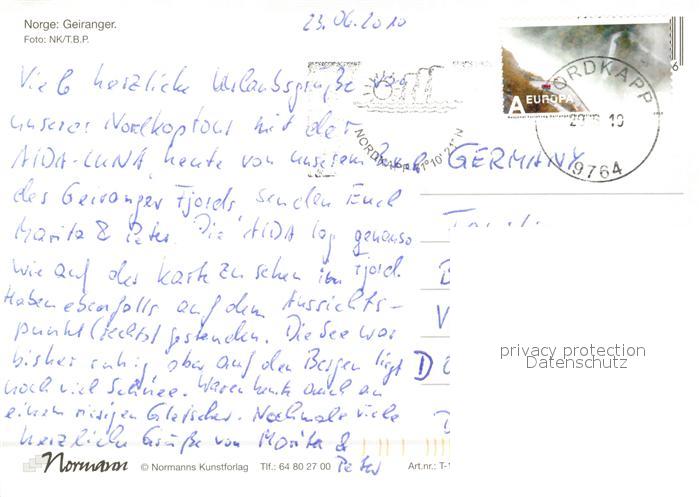 23.06.2010
Norge: Geiranger.
Foto: NK/T.B.P.
Viele herzliche Urlaubsgrüße von
unserer Nordkaptour mit der
AIDA-LUNA, heute von unserem Besuch
des Geiranger Fjords, senden Euch
Marita & Peter. Die AIDA lag genauso
wie auf der Karte zu sehen im Fjord.
Haben ebenfalls auf dem Aussichts-
punkt (rechts) gestanden. Die See war
bisher ruhig, aber auf den Bergen liegt
noch viel Schnee. Waren heute auch an
einem riesigen Gletscher. Nochmals viele
herzliche Grüße von Marita &
Peter
A EUROPA
NORDKAPP
19
9764
NORDKAPP 71°10'21"N
GERMANY
D
V
privacy protection
Datenschutz
Normann
© Normanns Kunstforlag Tlf.: 64 80 27 00 Art.nr.: T-1